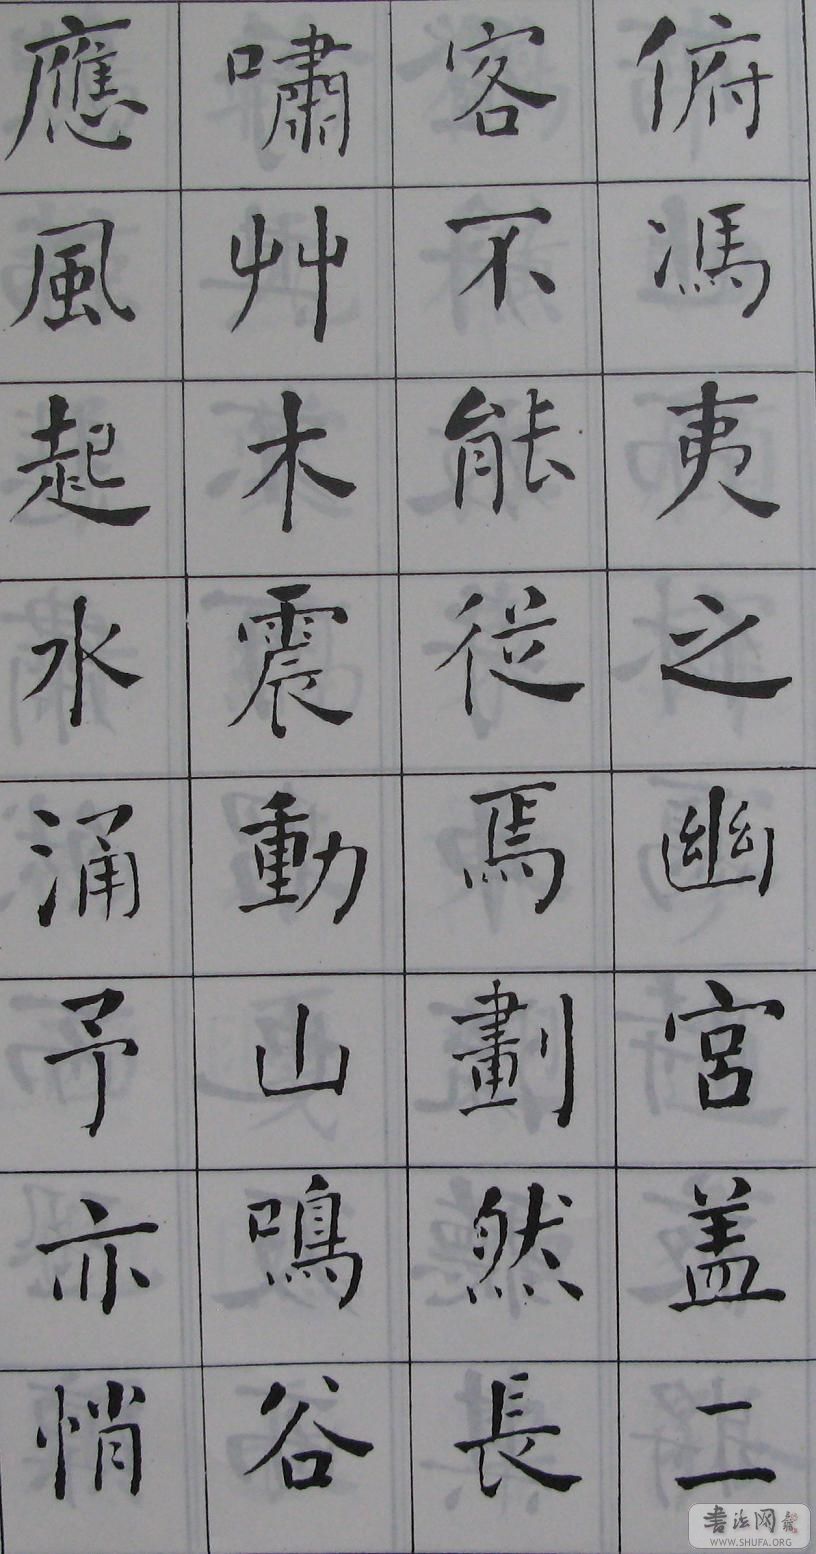 俯馮夷之幽宮盖二
客不能從焉劃然長
嘯艸木震動山鳴谷
應風起水涌予亦悄
书法网
WWW.SHUFA.ORG